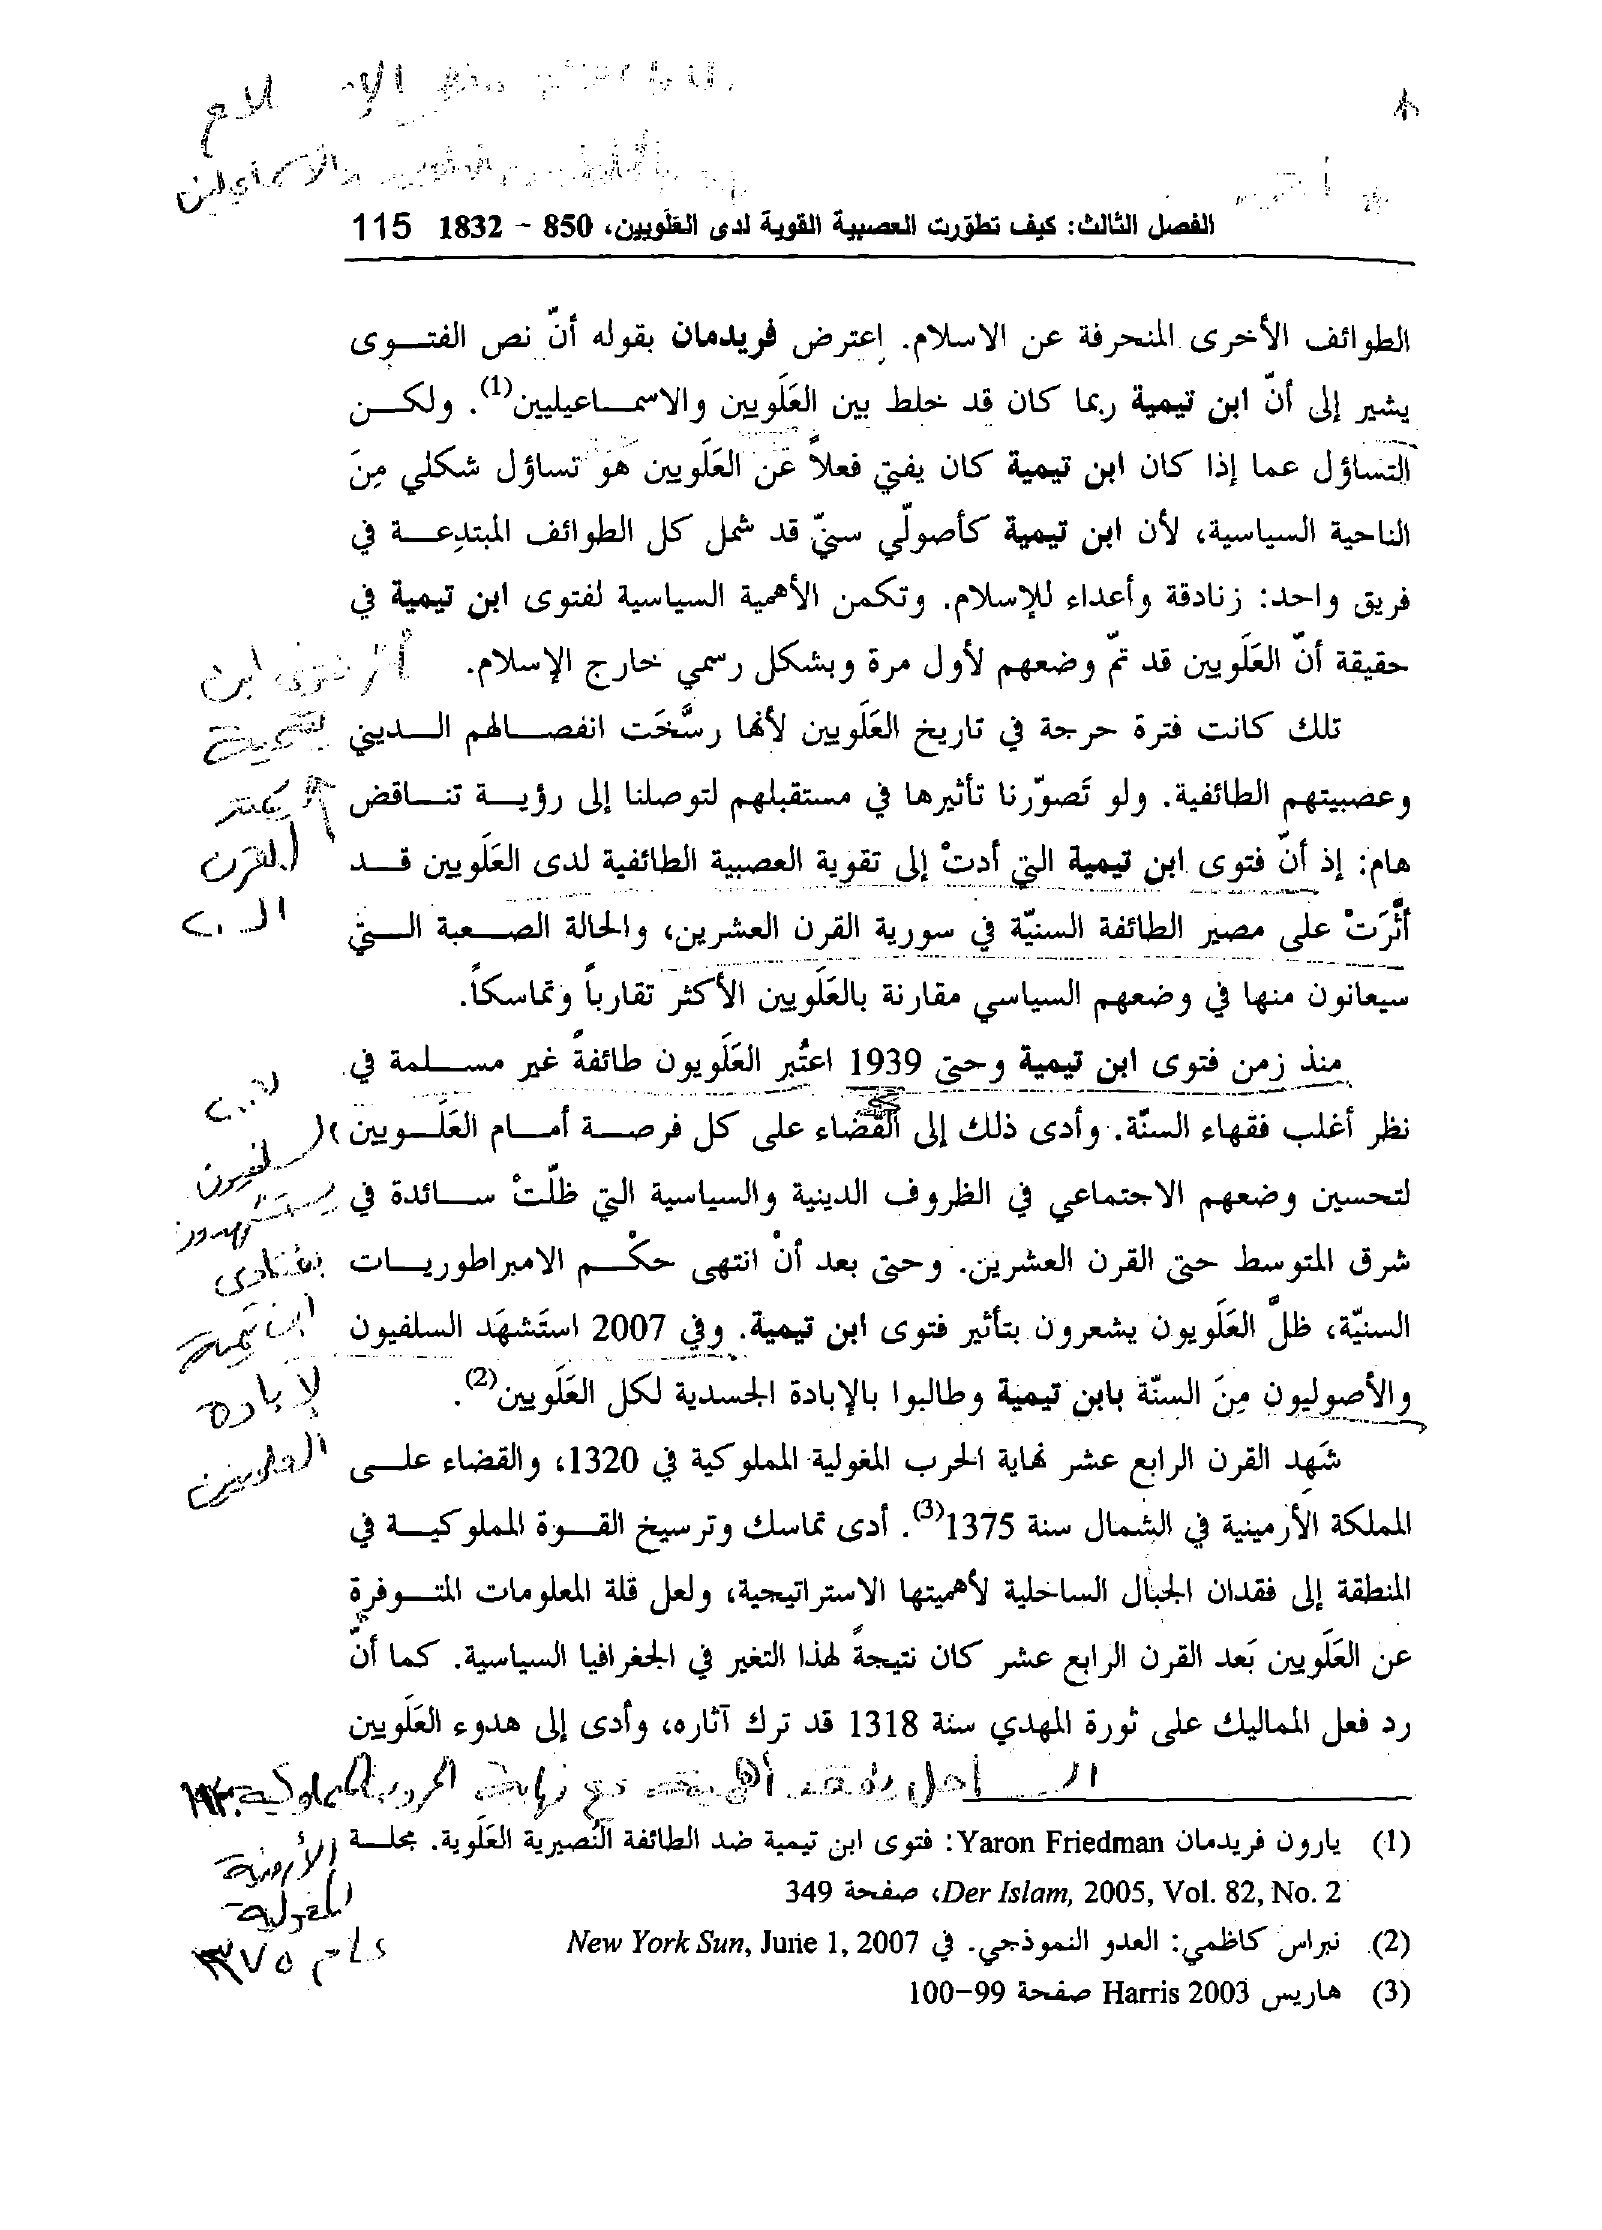 الفصل الثالث: كيف تطوّرت العصبية القوية لدى العَلَويين، 850 – 1832 115
الطوائف الأخرى المنحرفة عن الاسلام. إعترض فريدمان بقوله أنّ نص الفتوى
يشير إلى أنّ ابن تيمية ربما كان قد خلط بين العَلَويين والاسماعيليين(1). ولكن
التساؤل عما إذا كان ابن تيمية كان يفتي فعلاً عن العَلَويين هو تساؤل شكلي مِنَ
الناحية السياسية، لأن ابن تيمية كأصولّي سنيّ قد شمل كل الطوائف المبتدِعة في
فريق واحد: زنادقة وأعداء للإسلام. وتكمن الأهمية السياسية لفتوى ابن تيمية في
حقيقة أنّ العَلَويين قد تمّ وضعهم لأول مرة وبشكل رسمي خارج الإسلام.
أثر فتوى ابن
تيمية
تلك كانت فترة حرجة في تاريخ العَلَويين لأنها رسَّخَت انفصالهم الديني
وعصبيتهم الطائفية. ولو تَصوّرنا تأثيرها في مستقبلهم لتوصلنا إلى رؤية تناقض
هام: إذ أنّ فتوى ابن تيمية التي أدتْ إلى تقوية العصبية الطائفية لدى العَلَويين قد
القرن
الـ ٢٠
أثَّرَتْ على مصير الطائفة السنيّة في سورية القرن العشرين، والحالة الصعبة التي
سيعانون منها في وضعهم السياسي مقارنة بالعَلَويين الأكثر تقارباً وتماسكاً.
منذ زمن فتوى ابن تيمية وحتى 1939 اعتُبر العَلَويون طائفةً غير مسلمة في
نظر أغلب فقهاء السنّة. وأدى ذلك إلى القَضاء على كل فرصة أمام العَلَويين
لتحسين وضعهم الاجتماعي في الظروف الدينية والسياسية التي ظلّتْ سائدة في
شرق المتوسط حتى القرن العشرين. وحتى بعد أنْ انتهى حكْم الامبراطوريات
السنيّة، ظلّ العَلَويون يشعرون بتأثير فتوى ابن تيمية. وفي 2007 استَشهَد السلفيون
والأصوليون مِنَ السنّة بابن تيمية وطالبوا بالإبادة الجسدية لكل العَلَويين(2).
٢٠٠٧
السلفيون
يستشهدون
بفتاوى
ابن تيمية
لإبادة
العلويين
شَهِد القرن الرابع عشر نهاية الحرب المغولية المملوكية في 1320، والقضاء على
المملكة الأرمينية في الشمال سنة 1375(3). أدى تماسك وترسيخ القوة المملوكية في
المنطقة إلى فقدان الجبال الساحلية لأهميتها الاستراتيجية، ولعل قلة المعلومات المتوفرة
عن العَلَويين بَعد القرن الرابع عشر كان نتيجةً لهذا التغير في الجغرافيا السياسية. كما أنّ
رد فعل المماليك على ثورة المهدي سنة 1318 قد ترك آثاره، وأدى إلى هدوء العَلَويين
الساحل يفقد أهميته مع نهاية الحروب المملوكية
المغولية
عام ١٣٧٥
(1) يارون فريدمان Yaron Friedman: فتوى ابن تيمية ضد الطائفة النُصيرية العَلَوية. مجلة
Der Islam, 2005, Vol. 82, No. 2، صفحة 349
(2) نبراس كاظمي: العدو النموذجي. في New York Sun, June 1, 2007
(3) هاريس Harris 2003 صفحة 99–100